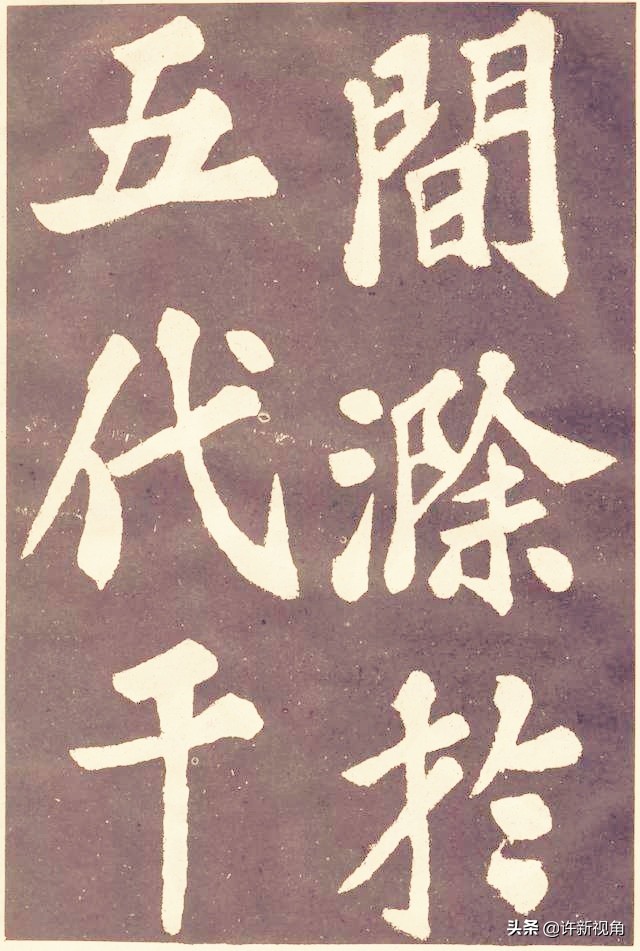 間滁於
五代干
头条 @许新视角